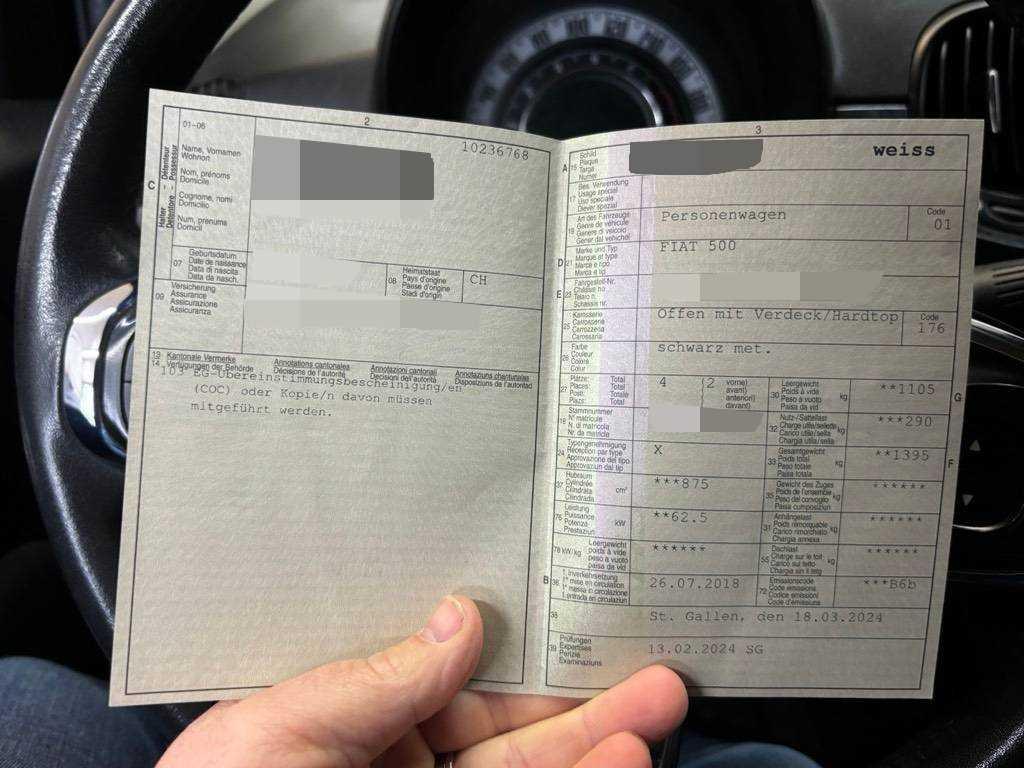 2
10236768
01–06
C
Halter
Détenteur
Detentore
Possessur
Name, Vornamen
Wohnort
Nom, prénoms
Domicile
Cognome, nomi
Domicilio
Num, prenums
Domicil
07
Geburtsdatum
Date de naissance
Data di nascita
Data da nasch.
08
Heimatstaat
Pays d'origine
Paese d'origine
Stadi d'origin
CH
09
Versicherung
Assurance
Assicurazione
Assicuranza
13
14
Kantonale Vermerke
Verfügungen der Behörde
Annotations cantonales
Décisions de l'autorité
Annotazioni cantonali
Decisioni dell'autorità
Annotaziuns chantunalas
Disposiziuns de l'autoritad
103 EG-Übereinstimmungsbescheinigung/en
(COC) oder Kopie/n davon müssen
mitgeführt werden.
3
A 15
Schild
Plaque
Targa
Numer
weiss
17
Bes. Verwendung
Usage spécial
Uso speciale
Diever spezial
19
Art des Fahrzeugs
Genre de véhicule
Genere di veicolo
Gener dal vehichel
Personenwagen
Code
01
D 21
Marke und Typ
Marque et type
Marca e tipo
Marca e tip
FIAT 500
E 23
Fahrgestell-Nr.
Châssis no
Telaio n.
Schassis nr.
25
Karosserie
Carrosserie
Carrozzeria
Carossaria
Offen mit Verdeck/Hardtop
Code
176
26
Farbe
Couleur
Colore
Colur
schwarz met.
27
Plätze: Total
Places: Total
Posti: Totale
Plazs: Total
4
(2
vorne)
avant)
anteriori)
davant)
30
Leergewicht
Poids à vide
Peso a vuoto
Paisa da vid
kg
**1105
G
18
Stammnummer
N° matricule
N. di matricola
Nr. da matricla
32
Nutz-/Sattellast
Charge utile/sellette
Carico utile/sella
Chargia utila/sella
kg
***290
24
Typengenehmigung
Réception par type
Approvazione del tipo
Approvaziun dal tip
X
33
Gesamtgewicht
Poids total
Peso totale
Paisa totala
kg
**1395
F
37
Hubraum
Cylindrée
Cilindrata
Cilindrada
cm³
***875
35
Gewicht des Zuges
Poids de l'ensemble
Peso del convoglio
Paisa cumposiziun
kg
******
76
Leistung
Puissance
Potenza
Prestaziun
kW
**62.5
31
Anhängelast
Poids remorquable
Carico rimorchiato
Chargia annexa
kg
******
78 kW/kg
Leergewicht
poids à vide
peso a vuoto
paisa da vid
******
55
Dachlast
Charge sur le toit
Carico sul tetto
Chargia sin il tetg
kg
******
B 36
1. Inverkehrsetzung
1re mise en circulation
1a messa in circolazione
1. entrada en circulaziun
26.07.2018
72
Emissionscode
Code émissions
Codice emissioni
Code d'emissiuns
***B6b
38
St. Gallen, den 18.03.2024
39
Prüfungen
Expertises
Perizie
Examinaziuns
13.02.2024 SG